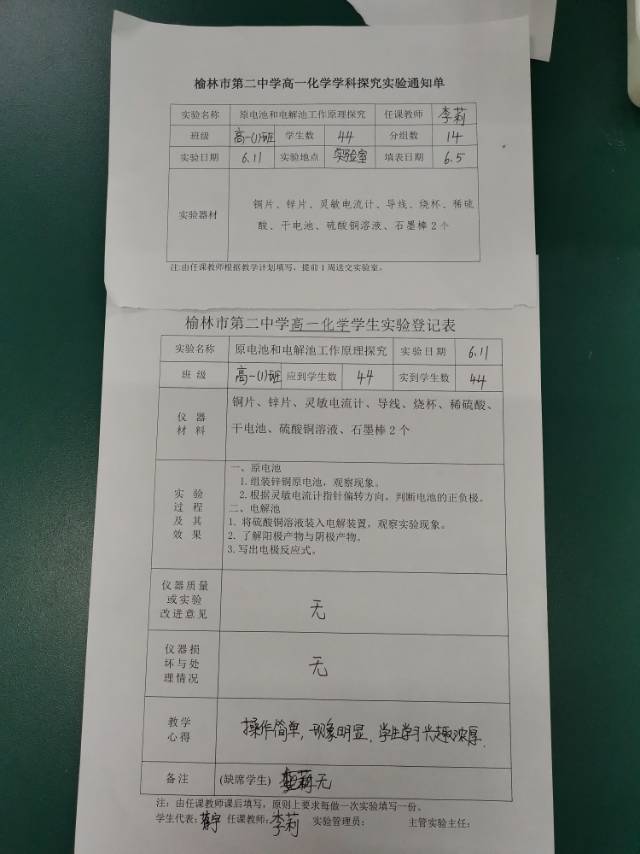 榆林市第二中学高一化学学科探究实验通知单
实验名称 原电池和电解池工作原理探究 任课教师 李莉
班级 高一(1)班 学生数 44 分组数 14
实验日期 6.11 实验地点 实验室 填表日期 6.5
实验器材 铜片、锌片、灵敏电流计、导线、烧杯、稀硫
酸、干电池、硫酸铜溶液、石墨棒2个
注:由任课教师根据教学计划填写,提前1周送交实验室。
榆林市第二中学高一化学学生实验登记表
实验名称 原电池和电解池工作原理探究 实验日期 6.11
班 级 高一(1)班 应到学生数 44 实到学生数 44
仪 器
材 料
铜片、锌片、灵敏电流计、导线、烧杯、稀硫酸、
干电池、硫酸铜溶液、石墨棒2个
实 验
过 程
及 其
效 果
一、原电池
1.组装锌铜原电池,观察现象。
2.根据灵敏电流计指针偏转方向,判断电池的正负极。
二、电解池
1.将硫酸铜溶液装入电解装置,观察实验现象。
2.了解阳极产物与阴极产物。
3.写出电极反应式。
仪器质量
或实验
改进意见
无
仪器损
坏与处
理情况
无
教学
心得
操作简单,现象明显,学生学习兴趣浓厚.
备注 (缺席学生) 无
注:由任课教师课后填写,原则上要求每做一次实验填写一份。
学生代表: 任课教师:李莉 实验管理员: 主管实验主任: